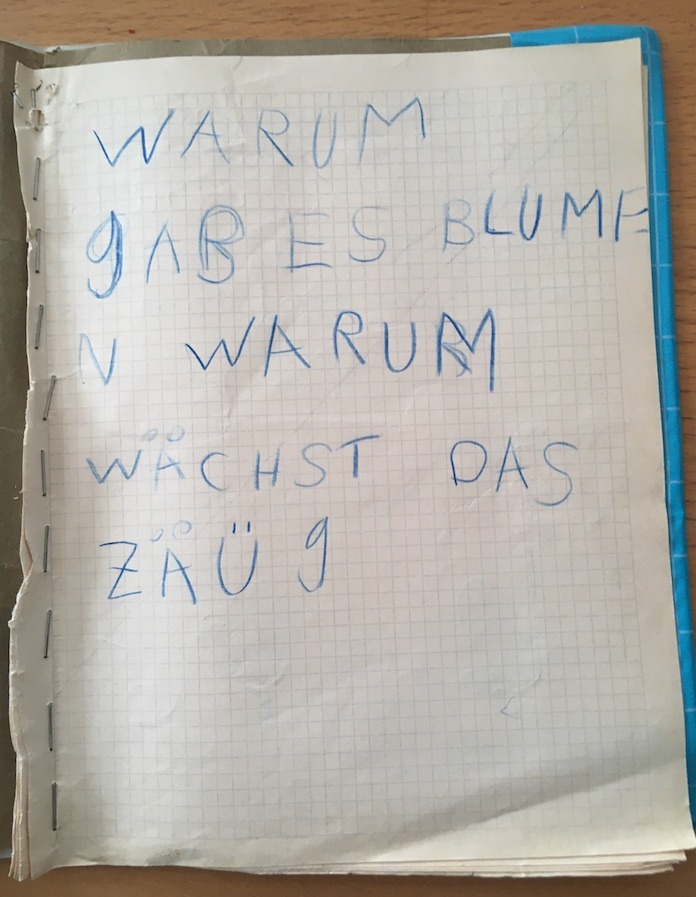 WARUM
gAB ES BLUME
N WARUM
WÄCHST DAS
ZÄÜg